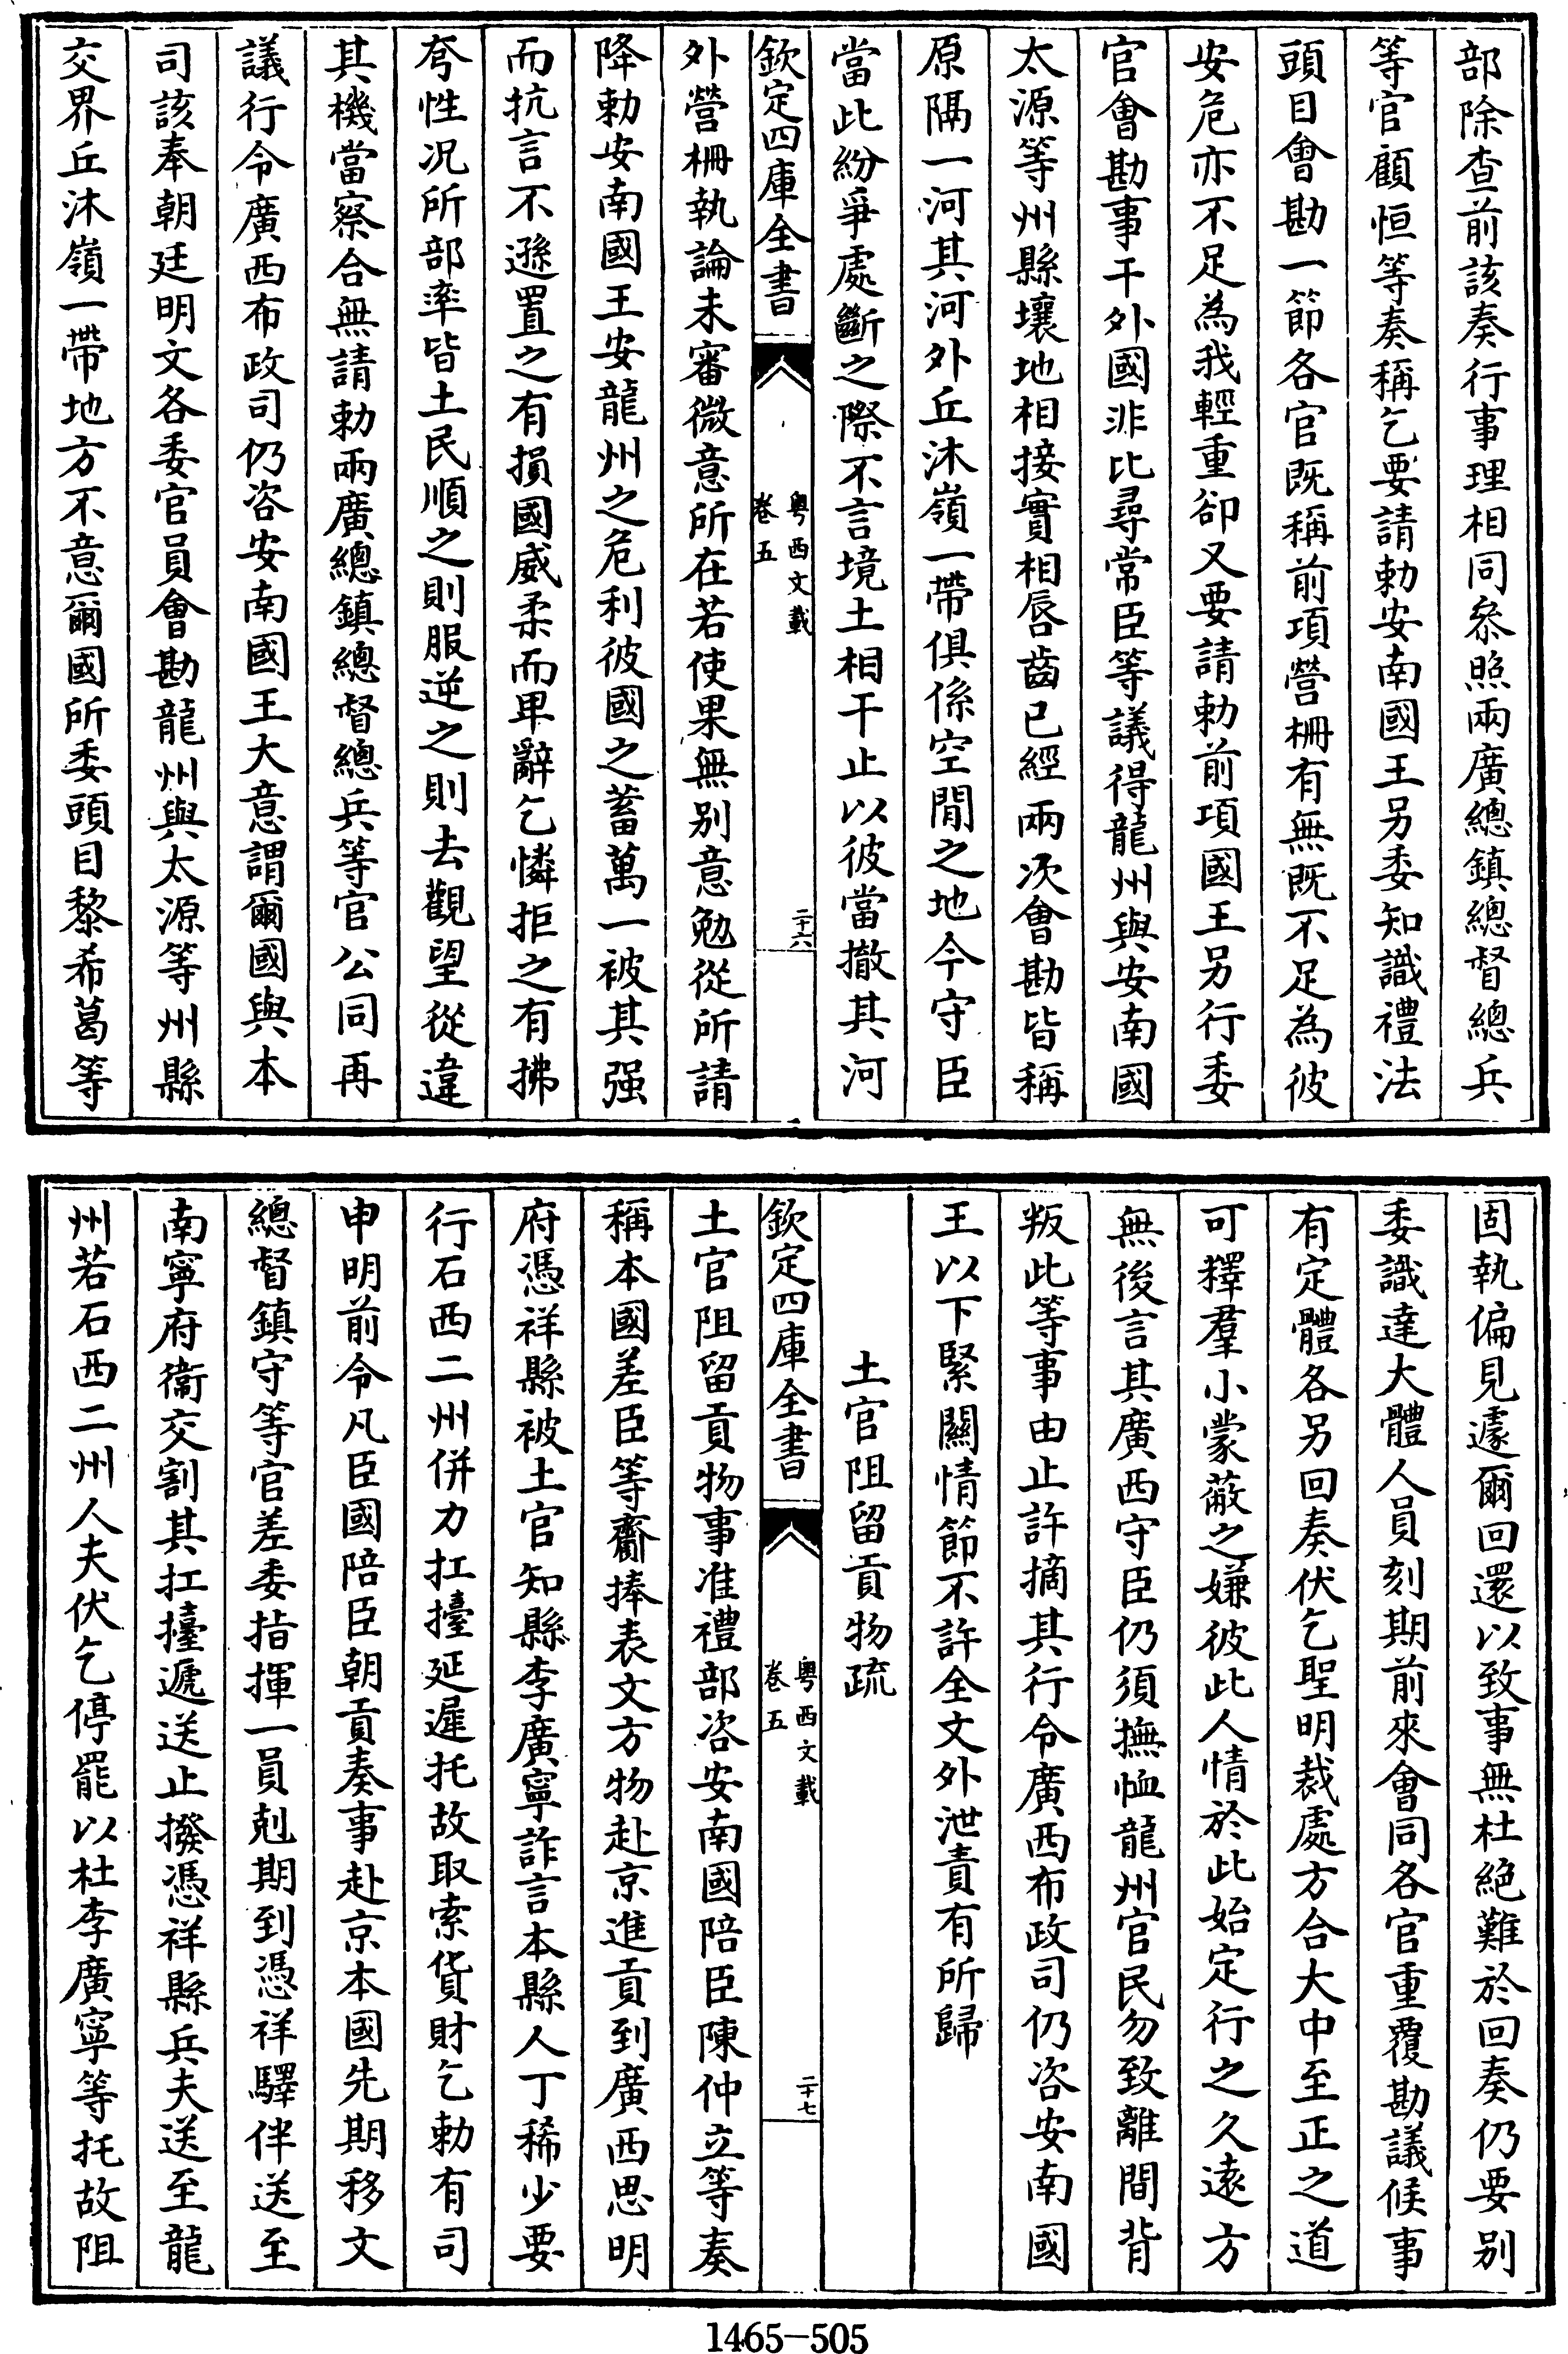 部除查前該奏行事理相同叅照兩廣總鎮總督總兵
等官顧恒等奏稱乞要請勅安南國王另委知識禮法
頭目會勘一節各官既稱前項營柵有無既不足為彼
安危亦不足為我輕重卻又要請勅前項國王另行委
官會勘事干外國非比尋常臣等議得龍州與安南國
太源等州縣壤地相接實相唇齒已經兩次會勘皆稱
原隅一河其河外丘沐嶺一帶俱係空閒之地今守臣
當此紛爭處斷之際不言境土相干止以彼當撤其河
欽定四庫全書
粵西文載
卷五
二十六
外營柵執論未審微意所在若使果無別意勉從所請
降勅安南國王安龍州之危利彼國之蓄萬一被其强
而抗言不遜置之有損國威柔而卑辭乞憐拒之有拂
夸性况所部率皆土民順之則服逆之則去觀望從違
其機當察合無請勅兩廣總鎮總督總兵等官公同再
議行令廣西布政司仍咨安南國王大意謂爾國與本
司該奉朝廷明文各委官員會勘龍州與太源等州縣
交界丘沐嶺一帶地方不意爾國所委頭目黎希葛等
固執偏見遽爾回還以致事無杜絶難於回奏仍要別
委識達大體人員刻期前來會同各官重覆勘議候事
有定體各另回奏伏乞聖明裁處方合大中至正之道
可釋羣小蒙蔽之嫌彼此人情於此始定行之久遠方
無後言其廣西守臣仍須撫恤龍州官民勿致離間背
叛此等事由止許摘其行令廣西布政司仍咨安南國
王以下緊關情節不許全文外泄責有所歸
土官阻留貢物疏
欽定四庫全書
粵西文載
卷五
二十七
土官阻留貢物事准禮部咨安南國陪臣陳仲立等奏
稱本國差臣等齎捧表文方物赴京進貢到廣西思明
府憑祥縣被土官知縣李廣寧詐言本縣人丁稀少要
行石西二州併力扛擡延遲托故取索貨財乞勅有司
申明前令凡臣國陪臣朝貢奏事赴京本國先期移文
總督鎮守等官差委指揮一員剋期到憑祥驛伴送至
南寧府衞交割其扛擡遞送止撥憑祥縣兵夫送至龍
州若石西二州人夫伏乞停罷以杜李廣寧等托故阻
1465-505